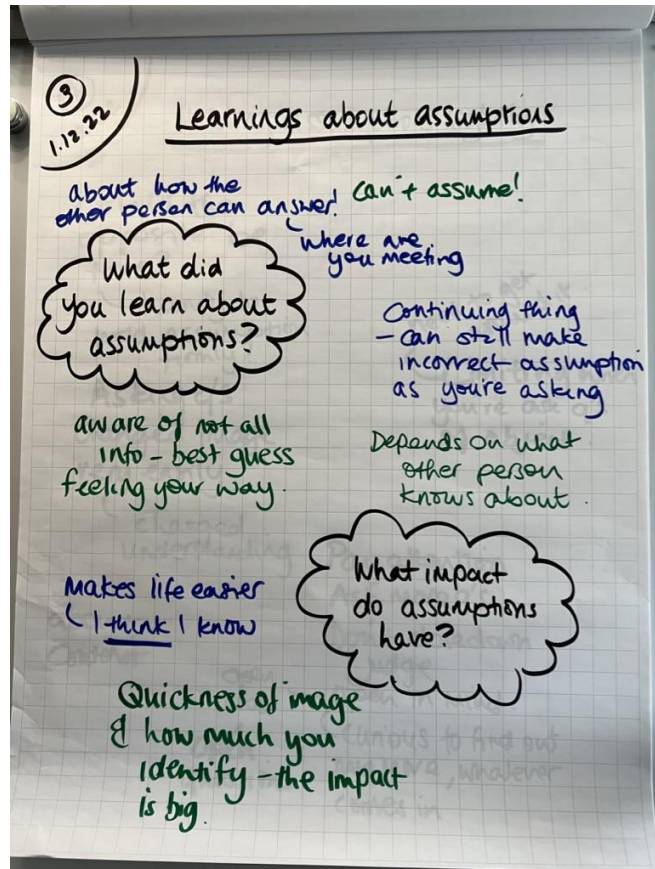 3
1.12.22
Learnings about assumptions
about how the
other person can answer!
where are
you meeting
can't assume!
What did
you learn about
assumptions?
Continuing thing
- can still make
incorrect assumption
as you're asking
aware of not all
info - best guess
feeling your way.
Depends on what
other person
knows about.
Makes life easier
I think I know
What impact
do assumptions
have?
Quickness of image
& how much you
identify - the impact
is big.